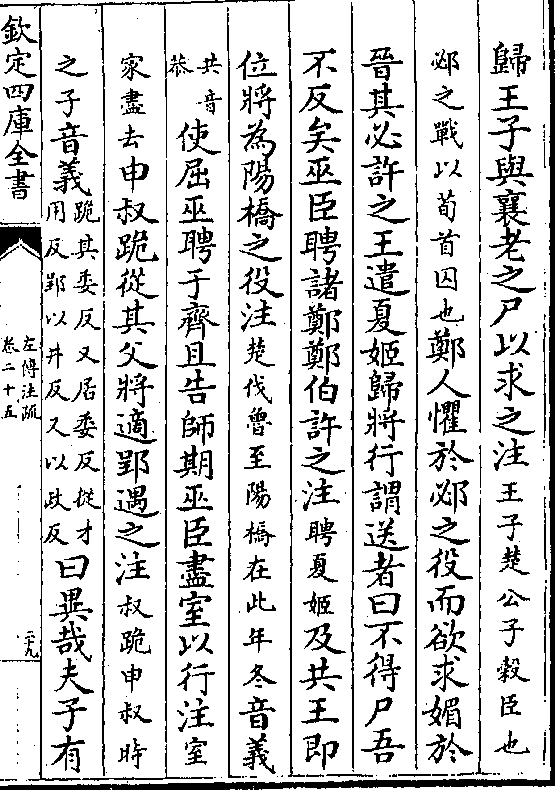 歸王子與襄老之尸以求之注王子楚公子穀臣也
邲之戰以荀首囚也鄭人懼於邲之役而欲求媚於
晉其必許之王遣夏姬歸將行謂送者曰不得尸吾
不反矣巫臣聘諸鄭鄭伯許之注聘夏姬及共王即
位將為陽橋之役注楚伐魯至陽橋在此年冬音義
共音
恭使屈巫聘于齊且告師期巫臣盡室以行注室
家盡去申叔跪從其父將適郢遇之注叔跪申叔時
之子音義跪其委反又居委反從才
用反郢以井反又以政反曰異哉夫子有
欽定四庫全書
左傳注疏
卷二十五
二十九